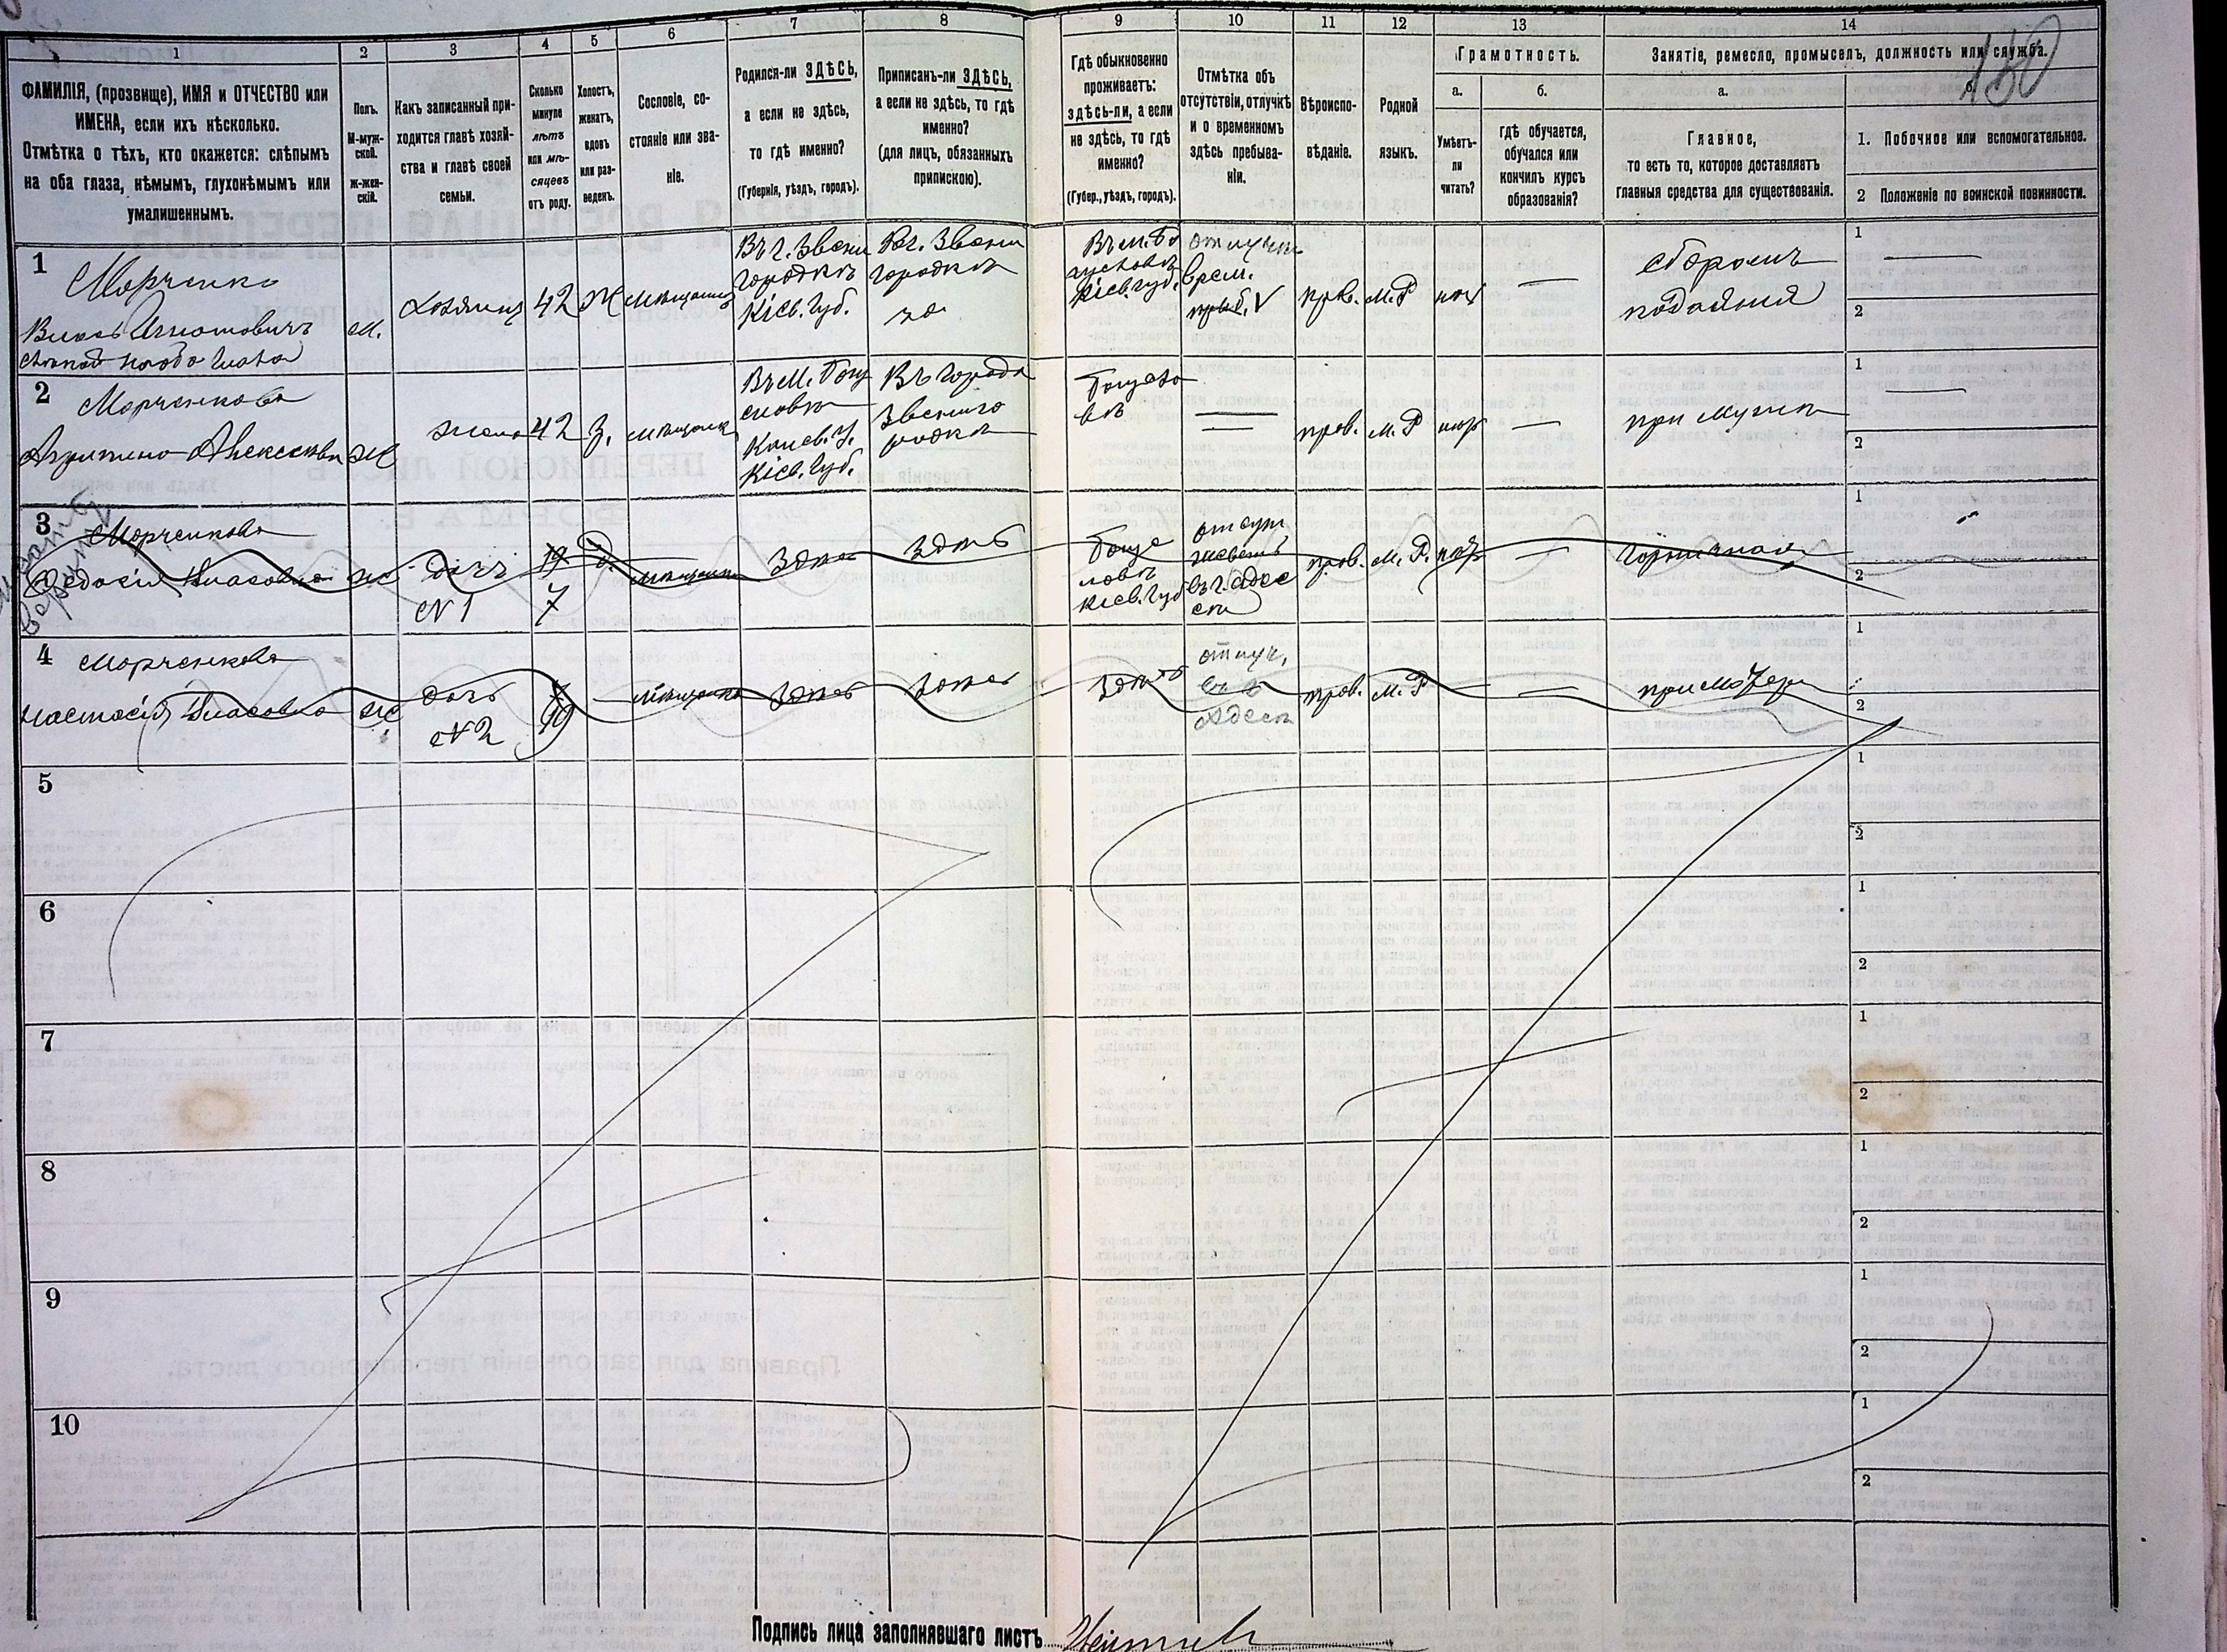 150
1
2
3
4
5
6
7
8
9
10
11
12
13
14
ФАМИЛІЯ, (прозвище), ИМЯ и ОТЧЕСТВО или
ИМЕНА, если ихъ нѣсколько.
Отмѣтка о тѣхъ, кто окажется: слѣпымъ
на оба глаза, нѣмымъ, глухонѣмымъ или
умалишеннымъ.
Полъ.
М-муж-
ской.
ж-жен-
скій.
Какъ записанный при-
ходится главѣ хозяй-
ства и главѣ своей
семьи.
Сколько
минуло
лѣтъ
или мѣ-
сяцевъ
отъ роду.
Холостъ,
женатъ,
вдовъ
или раз-
веденъ.
Сословіе, со-
стояніе или зва-
ніе.
Родился-ли ЗДѢСЬ,
а если не здѣсь,
то гдѣ именно?
(Губернія, уѣздъ, городъ).
Приписанъ-ли ЗДѢСЬ,
а если не здѣсь, то гдѣ
именно?
(для лицъ, обязанныхъ
припискою).
Гдѣ обыкновенно
проживаетъ:
здѣсь-ли, а если
не здѣсь, то гдѣ
именно?
(Губер., уѣздъ, городъ).
Отмѣтка объ
отсутствіи, отлучкѣ
и о временномъ
здѣсь пребыва-
ніи.
Вѣроиспо-
вѣданіе.
Родной
языкъ.
Грамотность.
а.
Умѣетъ-
ли
читать?
б.
гдѣ обучается,
обучался или
кончилъ курсъ
образованія?
Занятіе, ремесло, промыселъ, должность или служба.
а.
Главное,
то есть то, которое доставляетъ
главныя средства для существованія.
б.
1. Побочное или вспомогательное.
2 Положеніе по воинской повинности.
1
Марченко
Власъ Игнатовичъ
слѣпой на оба глаза
м.
хозяинъ
42
Ж
мѣщанинъ
Въ г. Звени
городкѣ
Кіев. Губ.
Въ г. Звени
городкѣ
Въ м. Бо
гуславѣ
Кіев. Губ.
врем.
V
прав.
М.Р
—
сборомъ
подаянія
1
2
2
Марченкова
Агрипина Алексѣевна
ж
жена
42
З.
мѣщанка
Въ м. Богу
славѣ
Канев. У.
Кіев. Губ.
Въ города
Звениго
родкѣ
Богусла
вѣ
прав.
М. Р
—
при мужѣ
1
2
3
Марченкова
Федосія Власовна
ж
дочь
№ 1
19
7
д.
мѣщанка
Здѣсь
Здѣсь
Богус
лавѣ
Кіев. Губ
отсут
живетъ
въ г. Одес
сѣ
прав.
М. Р.
—
Горничная
1
2
4
Марченкова
Настасія Власовна
ж
дочь
№ 2
7
19
мѣщанка
Здѣсь
Здѣсь
Здѣсь
отлуч.
въ г
Одесѣ
прав.
М. Р
—
при матери
1
2
5
1
2
6
1
2
7
1
2
8
1
2
9
1
2
10
1
2
Подпись лица заполнявшаго листъ